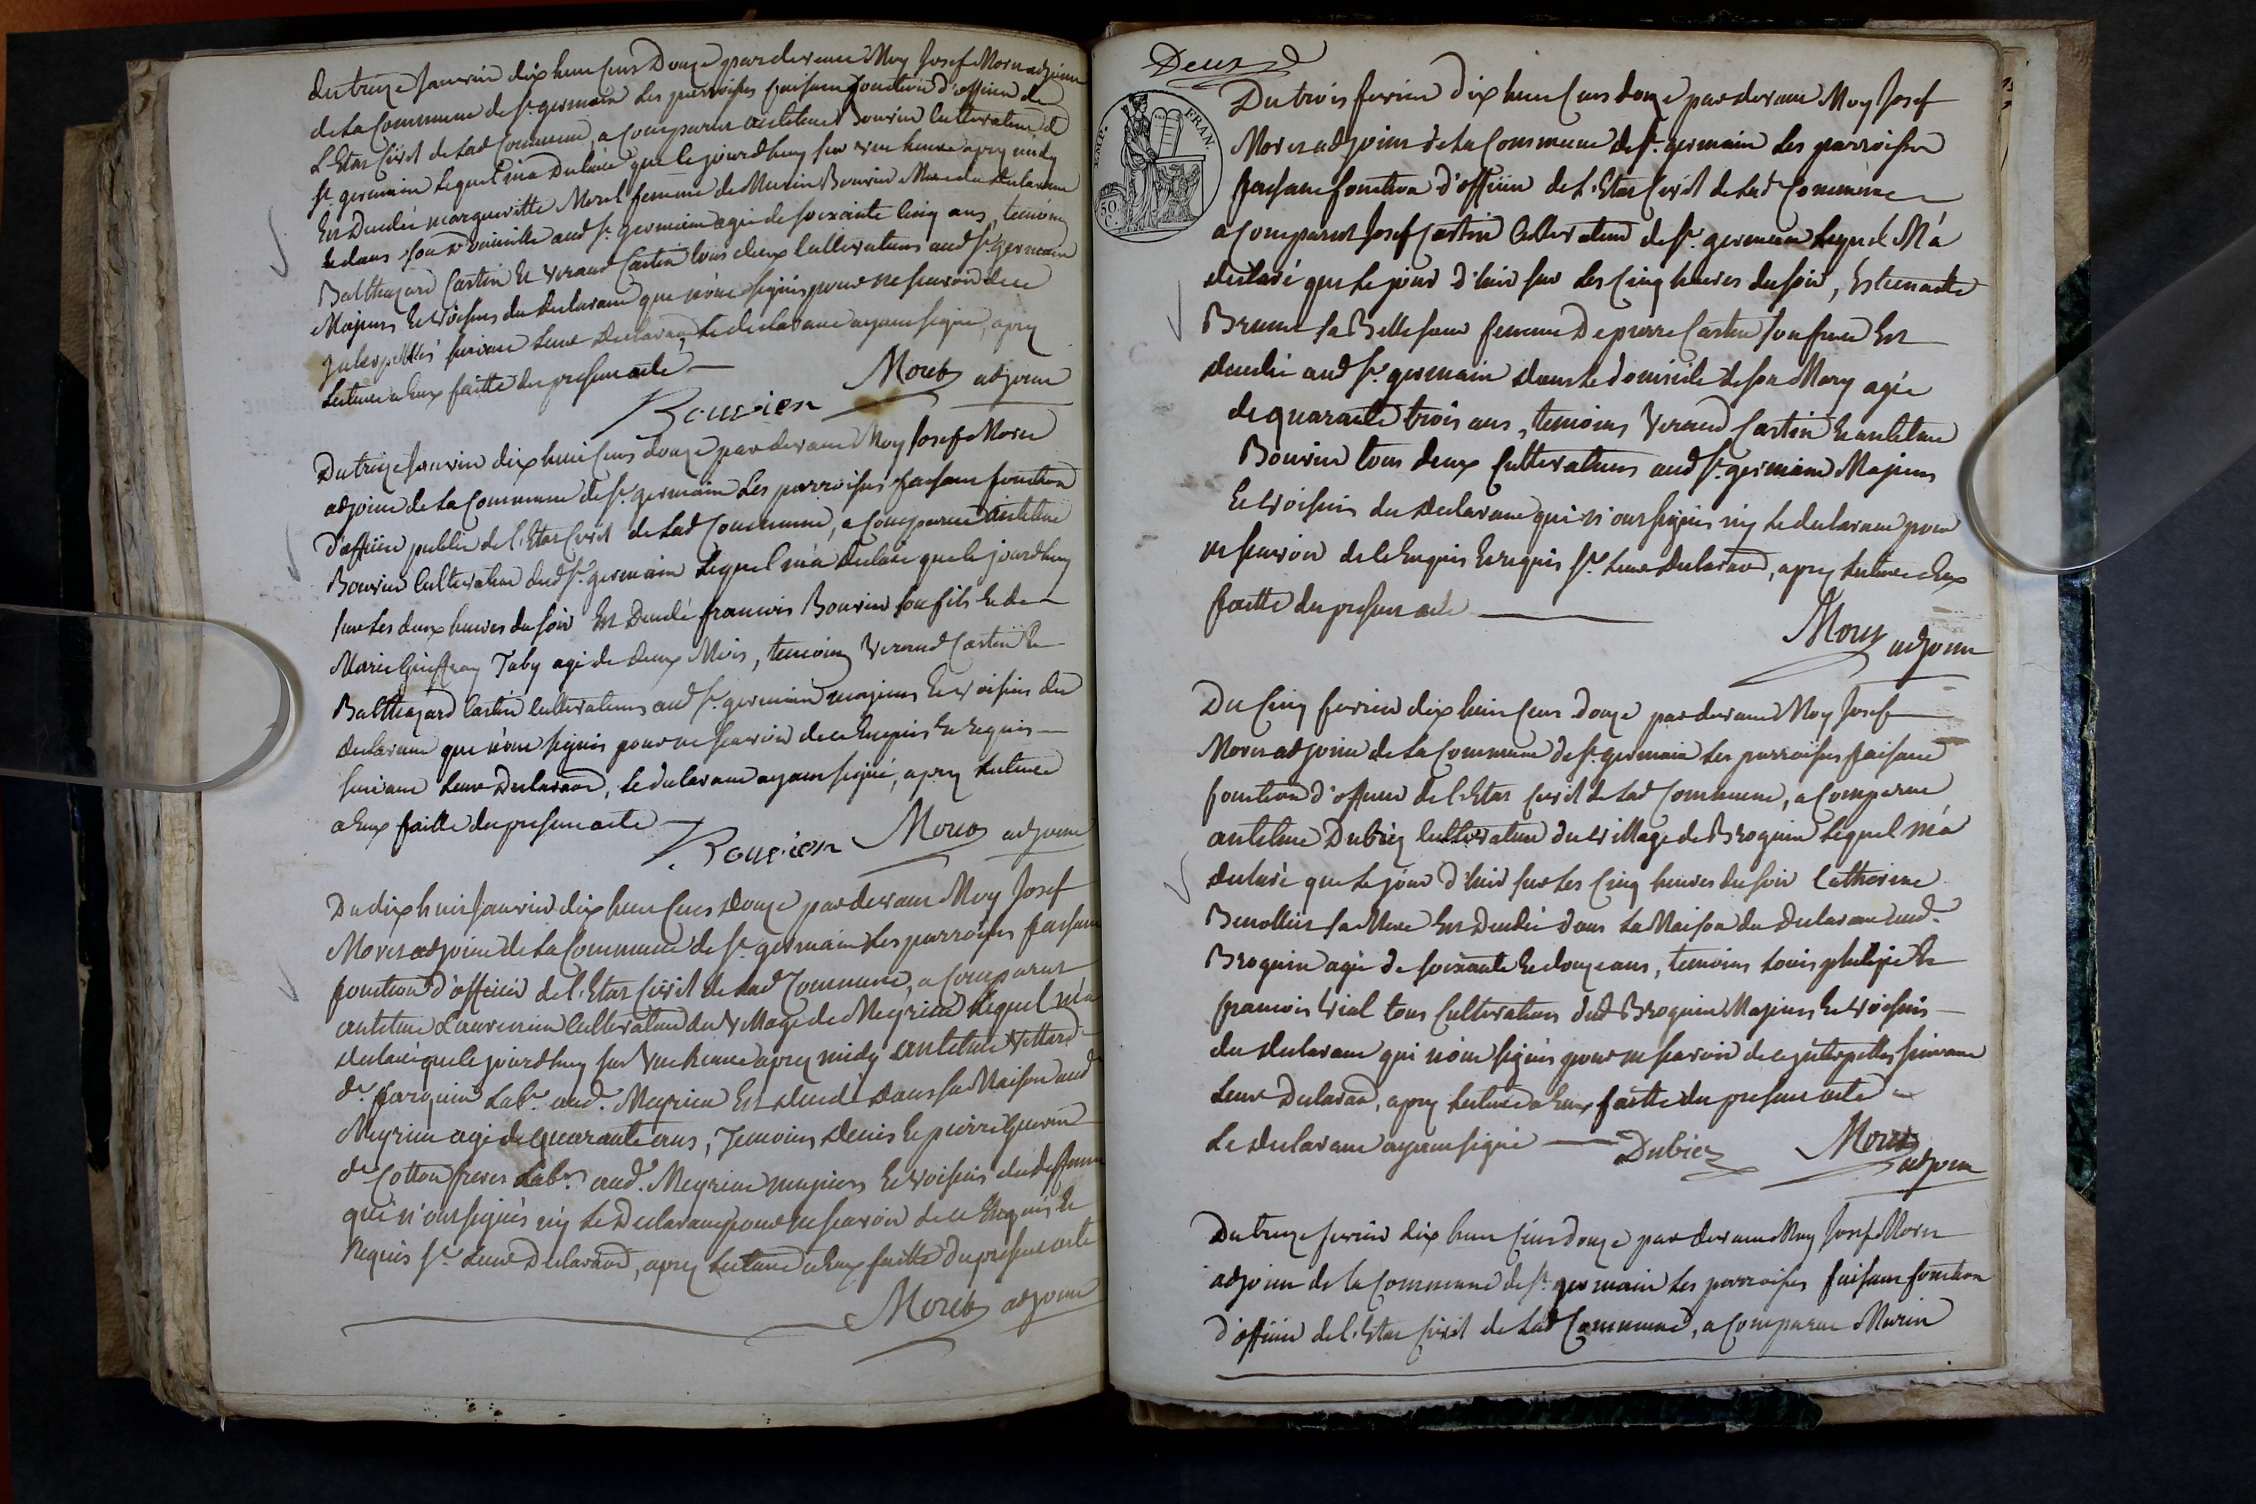 du treize Janvier dix huit Cens Douze pardevant Moy Josef Moret adjoint
de La Commune de St. germain Les parroisses faisant fonction d'officier de
L'Etat Civil de Lad Commune, a Comparut antelme Bouvier Cultivateur de
St. germain Lequel m'a Declaré que le jourdhuy sur une heure apres midy
Est Decedée margueritte Morel femme de Merin Bouvier Mere du declarant
et dans son domicille aud St. germain agée de soixante Cinq ans, temoins
Balthazard Castin et Verand Castin tous deux Cultivateurs aud St. germain
Majeurs et voisins du declarant que n'ont signés pour ne scavoir de ce
Interpellés suivant Leur Declaraon, Le declarant ayant signé, apres
Lecture a Eux faitte du present acte
Bouvier Moret adjoint
Du treize Janvier dix huit Cens douze pardevant Moy Josef Moret
adjoint de La Commune de St. germain Les parroisses faisant fonction
d'officier public de l'Etat Civil de Lad Commune, a Comparut antelme
Bouvier Cultivateur dud St. germain Lequel m'a declaré que le jourdhuy
sur Les deux heures du soir Est Decedé francois Bouvier son fils et de
Marie Taby agé de deux Mois, temoins Verand Castin et
Balthazard Castin Cultivateurs aud St. germain majeurs et voisins du
declarant que n'ont signés pour ne scavoir de ce Enquis et requis
suivant Leur Declaraon, Le declarant ayant signé, apres Lecture
a Eux faitte du present acte
Bouvier Moret adjoint
Du dix huit Janvier dix huit Cens douze pardevant Moy Josef
Moret adjoint de La Commune de St. germain Les parroisses faisant
fonction d'officier de l'Etat Civil de Lad Commune, a Comparut
antelme Cultivateur du village de Meyrieu Lequel m'a
declaré que le jourdhuy sur Une heure apres midy antelme
dt. Labr. aud. Meyrieu Est decedé dans sa Maison aud
Meyrieu agé de quarante ans, Temoins denis et pierre
dt Cotton freres Labrs. aud. Meyrieu majeurs et voisins du deffunt
qui n'ont signés n'y Le Declarant pour ne scavoir de ce Enquis et
Requis St. Leur Declaraon, apres Lecture a Eux faitte du present acte
Moret adjoint
Deux
EMP. FRAN.
50 C.
Du trois fevrier dix huit Cens douze pardevant Moy Josef
Moret adjoint de La Commune de St. germain Les parroisses
faisant fonction d'officier de L'Etat Civil de Lad Commune
a Comparut Josef Castin Cultivateur de St. germain Lequel M'a
declaré que Le jour d'hier sur Les Cinq heures du soir,
Brunet sa Belle soeur femme De pierre Castin son frere Est
decedée aud St. germain dans Le domicile de son Mary agée
de quarante trois ans, temoins Verand Castin et antelme
Bouvier tous deux Cultivateurs aud St. germain Majeurs
et voisins du declarant qui n'ont signés n'y Le declarant pour
ne scavoir de Ce Enquis et requis St. Leur Declaraon, apres Lecture a Eux
faitte du present acte
Moret adjoint
Du Cinq fevrier dix huit Cens douze pardevant Moy Josef
Moret adjoint de La Commune de St. germain Les parroisses faisant
fonction d'officier de l'Etat Civil de Lad Commune, a Comparut
antelme Dubiez Cultivateur du village de Brognin Lequel m'a
declaré que Le jour d'hier sur Les Cinq heures du soir Catherine
sa Mere Est Decedée dans La Maison du declarant aud.
Brognin agée de soixante et douze ans, temoins Louis philipe et
francois Vial tous Cultivateurs dud Brognin Majeurs et voisins
du declarant qui n'ont signés pour ne scavoir de ce interpellés suivant
Leur Declaraon, apres Lecture a Eux faitte du present acte
Le declarant ayant signé Dubiez Moret
adjoint
Du treize fevrier dix huit Cens douze pardevant Moy Josef Moret
adjoint de la Commune de St. germain Les parroisses faisant fonction
d'officier de l'Etat Civil de Lad Commune, a Comparut Merin